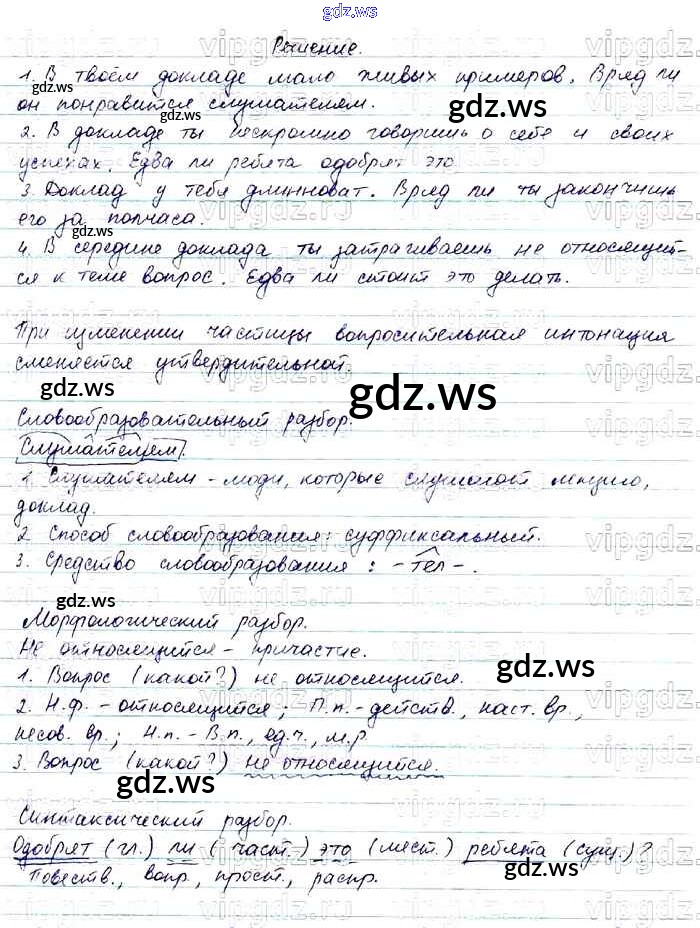 gdz.ws
Решение.
1. В твоём докладе мало живых примеров. Вряд ли
он понравится слушателем.
2. В докладе ты нескромно говоришь о себе и своих
успехах. Едва ли ребята одобрят это
3. Доклад у тебя длинноват. Вряд ли ты закончишь
его за полчаса.
4. В середине доклада ты затрагиваешь не относящий-
ся к теме вопрос. Едва ли стоит это делать.
При изменении частицы вопросительная интонация
сменяется утвердительной.
Словообразовательный разбор.
Слушателем.
1. Слушателям - люди, которые слушают лекцию,
доклад.
2. Способ словообразования: суффиксальный.
3. Средство словообразования: -тел-.
Морфологический разбор.
Не относящийся - причастие.
1. Вопрос (какой?) не относящийся.
2. Н.ф. - относящийся; П.п. - действ., наст. вр.,
несов. вр.; Н.п. - В.п., ед.ч., м.р
3. Вопрос (какой?) не относящийся.
Синтаксический разбор.
Одобрят (гл.) ли (част.) это (мест.) ребята (сущ.)?
Повеств., вопр., прост., распр.